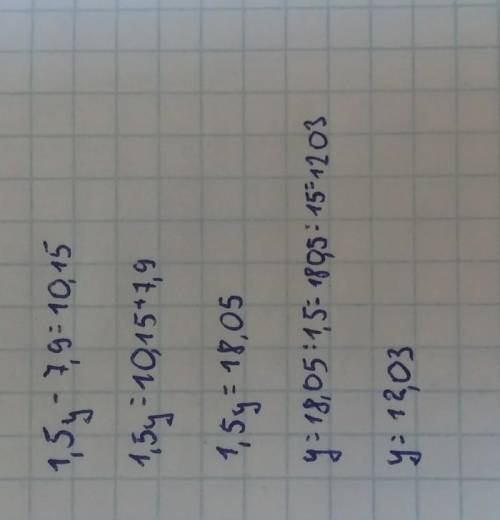 1,5y - 7,9 = 10,15
1,5y = 10,15+7,9
1,5y = 18,05
y = 18,05 : 1,5 = 180,5 : 15 = 12 03
y = 12,03